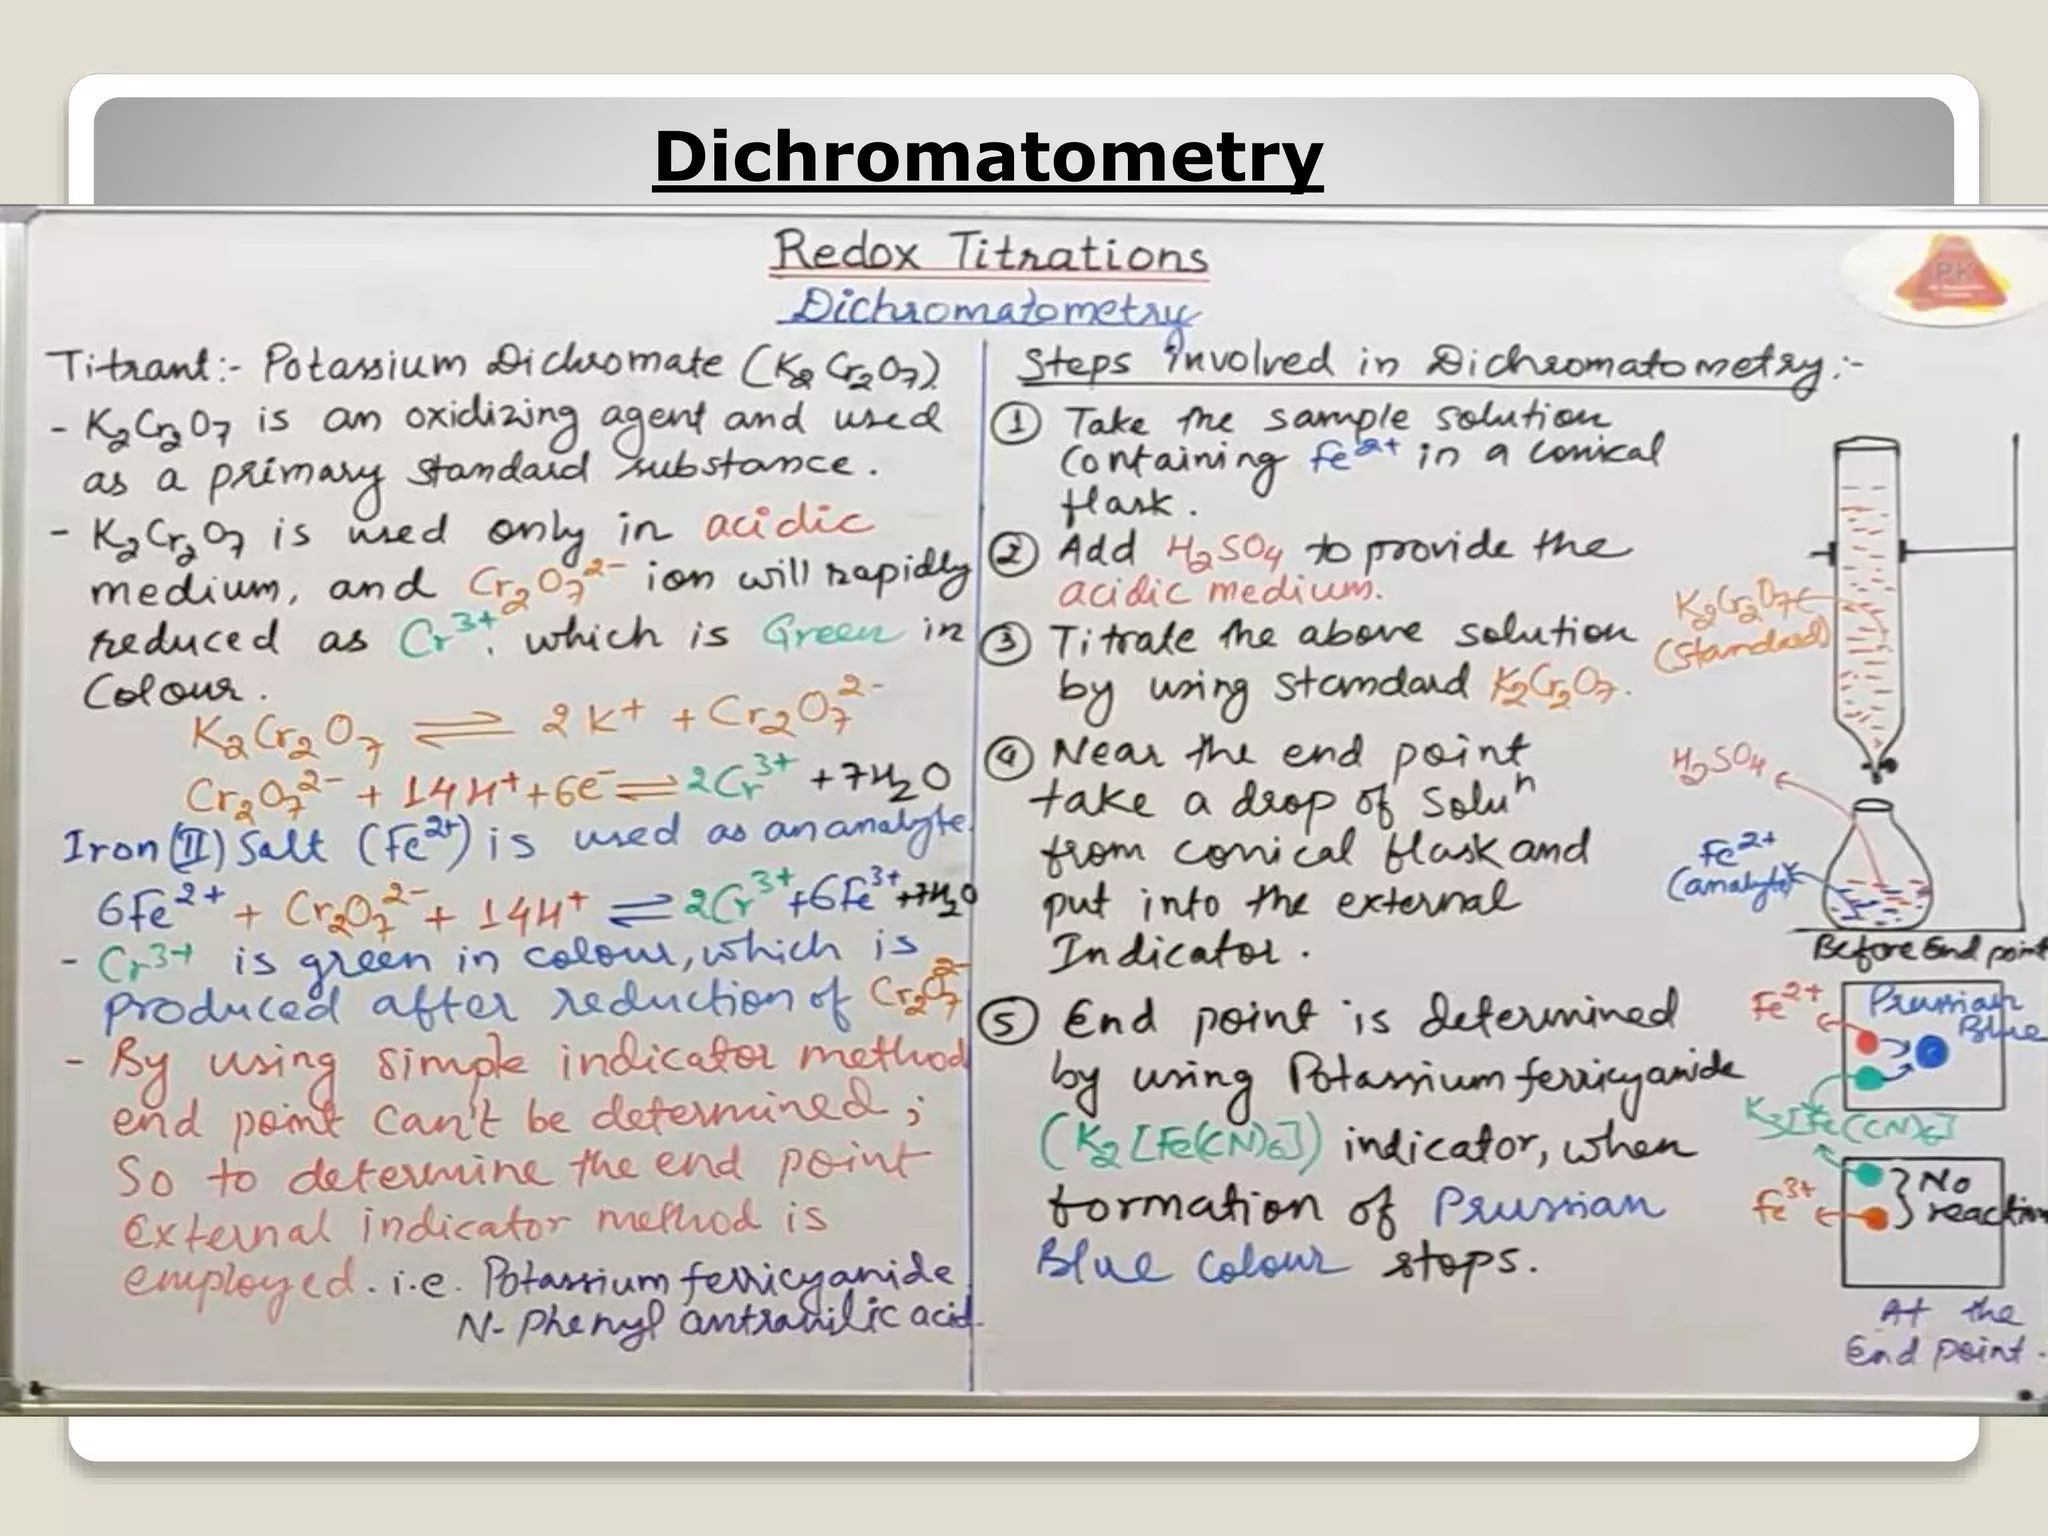 Dichromatometry
Redox Titrations
Dichromatometry
Titrant:- Potassium Dichromate (K2Cr2O7).
- K2Cr2O7 is an oxidizing agent and used
as a primary standard substance.
- K2Cr2O7 is used only in acidic
medium, and Cr2O7²⁻ ion will rapidly
reduced as Cr³⁺, which is Green in
Colour.
K2Cr2O7 ⇌ 2K⁺ + Cr2O7²⁻
Cr2O7²⁻ + 14H⁺ + 6e⁻ ⇌ 2Cr³⁺ + 7H2O
Iron (II) Salt (Fe²⁺) is used as an analyte.
6Fe²⁺ + Cr2O7²⁻ + 14H⁺ ⇌ 2Cr³⁺ + 6Fe³⁺ + 7H2O
- Cr³⁺ is green in colour, which is
produced after reduction of Cr2O7²⁻
- By using simple indicator method
end point can't be determined;
So to determine the end point
external indicator method is
employed. i.e. Potassium ferricyanide,
N-Phenyl antranilic acid.
Steps involved in Dichromatometry:-
① Take the sample solution
containing Fe²⁺ in a conical
flask.
② Add H2SO4 to provide the
acidic medium.
③ Titrate the above solution
by using standard K2Cr2O7.
④ Near the end point
take a drop of Soluⁿ
from conical flask and
put into the external
Indicator.
⑤ End point is determined
by using Potassium ferricyanide
(K2[Fe(CN)6]) indicator, when
formation of Prussian
Blue colour stops.
PK
K2Cr2O7
(Standard)
H2SO4
Fe²⁺
(analyte)
Before End point
Fe²⁺
Prussian
Blue
K3[Fe(CN)6]
No
reaction
Fe³⁺
At the
End point.